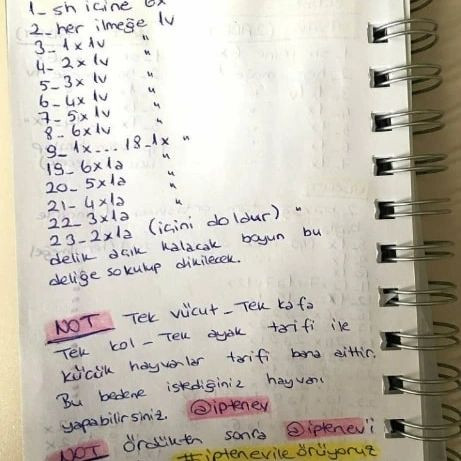 1_ sh içine 6x
2_ her ilmeğe 1v
3_ 1x1v "
4_ 2x1v "
5_ 3x1v "
6_ 4x1v "
7_ 5x1v "
8_ 6x1v "
9_ 1x....18_1x "
19_ 6x1a "
20_ 5x1a "
21_ 4x1a "
22_ 3x1a "
23_ 2x1a (içini doldur) "
delik açık kalacak boyun bu
deliğe sokulup dikilecek.
NOT Tek vücut_Tek kafa
Tek kol_Tek ayak tarifi ile
küçük hayvanlar tarifi bana aittir.
Bu bedene istediğiniz hayvanı
yapabilirsiniz. @iptenev
NOT ördükten sonra @iptenev'i
#iptenevileörüyoruz